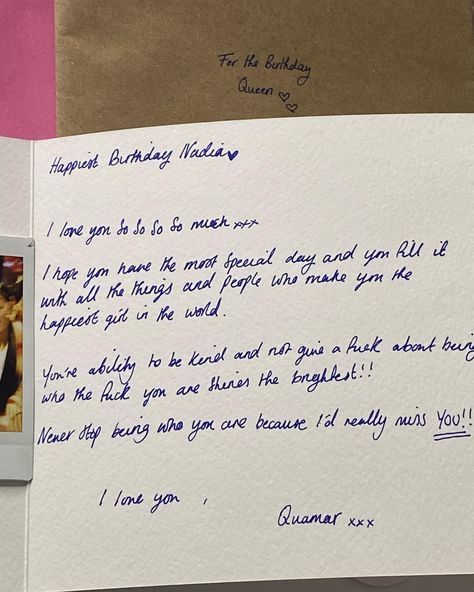 For the Birthday
Queen ♡♡
Happiest Birthday Nadia♥
I love you So So So So much xxx
I hope you have the most special day and you fill it
with all the things and people who make you the
happiest girl in the world.
You're ability to be kind and not give a fuck about being
who the fuck you are shines the brightest!!
Never stop being who you are because I'd really miss YOU!!
I love you ,
Quamar xxx